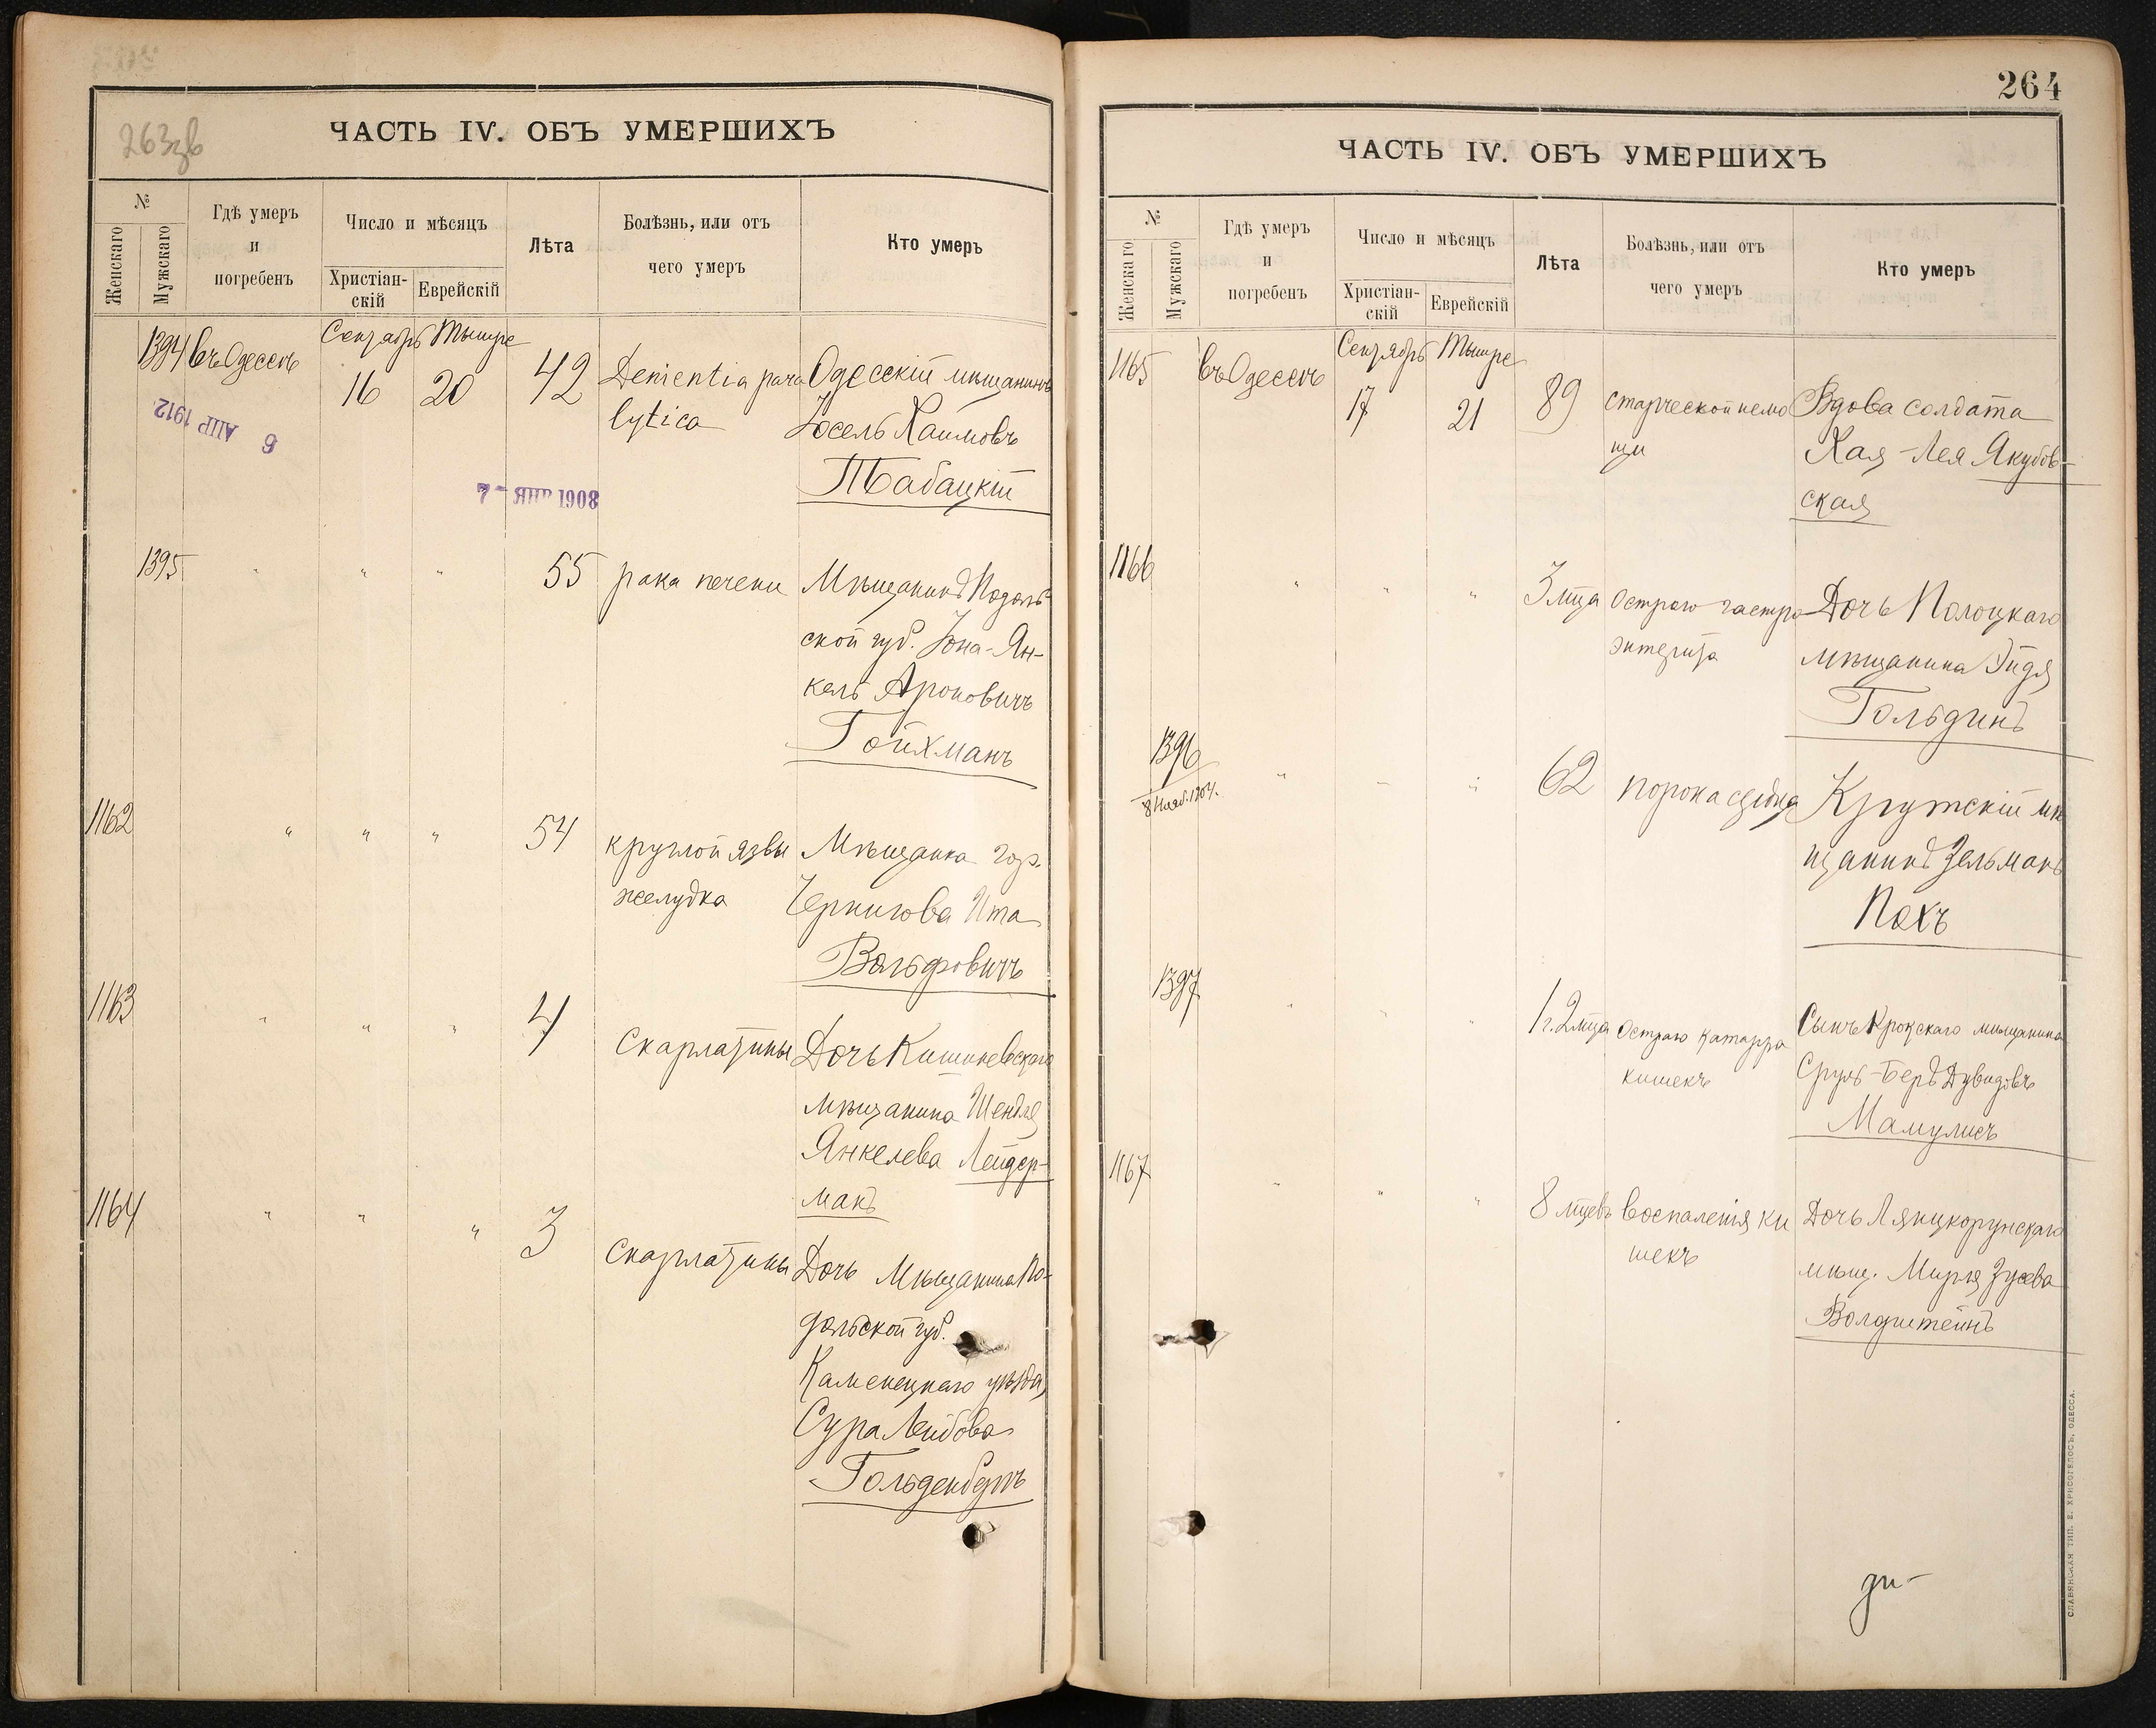 263зв
ЧАСТЬ IV. ОБЪ УМЕРШИХЪ
№
Женскаго
Мужскаго
Гдѣ умеръ
и
погребенъ
Число и мѣсяцъ
Христіан-
скій
Еврейскій
Лѣта
Болѣзнь, или отъ
чего умеръ
Кто умеръ
1394 въ Одессѣ Сентябрь Тышре
16 20 42 Dementia para Одесскій мѣщанинъ
lytica Іосель Хаимовъ
Табацкій
6 АПР 1912
7 - ЯНР 1908
1395 " " " 55 рака печени Мѣщанинъ Подоль-
ской губ. Іона-Ян-
кель Ароновичъ
Гойхманъ
1162 " " " 54 круглой язвы Мѣщанка гор.
желудка Чернигова Ита
Вольфовичъ
1163 " " " 4 Скарлатины Дочь Кишиневскаго
мѣщанина Шендля
Янкелева Лейдер-
манъ
1164 " " " 3 Скарлатины Дочь Мѣщанина По-
дольской губ.
Каменецкаго уѣзда,
Сура Лейбова
Гольденбергъ
264
ЧАСТЬ IV. ОБЪ УМЕРШИХЪ
№
Женскаго
Мужскаго
Гдѣ умеръ
и
погребенъ
Число и мѣсяцъ
Христіан-
скій
Еврейскій
Лѣта
Болѣзнь, или отъ
чего умеръ
Кто умеръ
1165 въ Одессѣ Сентябрь Тышре
17 21 89 старческой немо Вдова солдата
щи Хая-Лея Якубов-
ская
1166 " " " 3 мца Остраго гастро Дочь Полоцкаго
энтерита мѣщанина Эйдя
Гольдинъ
1396 " " " 62 порока сердца Крутскій мѣ
8 Нояб. 1904. щанинъ Зельманъ
Пахъ
1397 " " " 1 г. 2 мца Остраго катарра Сынъ Крокскаго мѣщанина
кишекъ Сруль-Беръ Дувидовъ
Мамулисъ
1167 " " " 8 мцевъ воспаленія ки Дочь Лянцкорунскаго
шекъ мѣщ. Мирля Зусева
Волдштейнъ
СЛАВЯНСКАЯ ТИП. Е. ХРИСОГЕЛОСЪ, ОДЕССА.